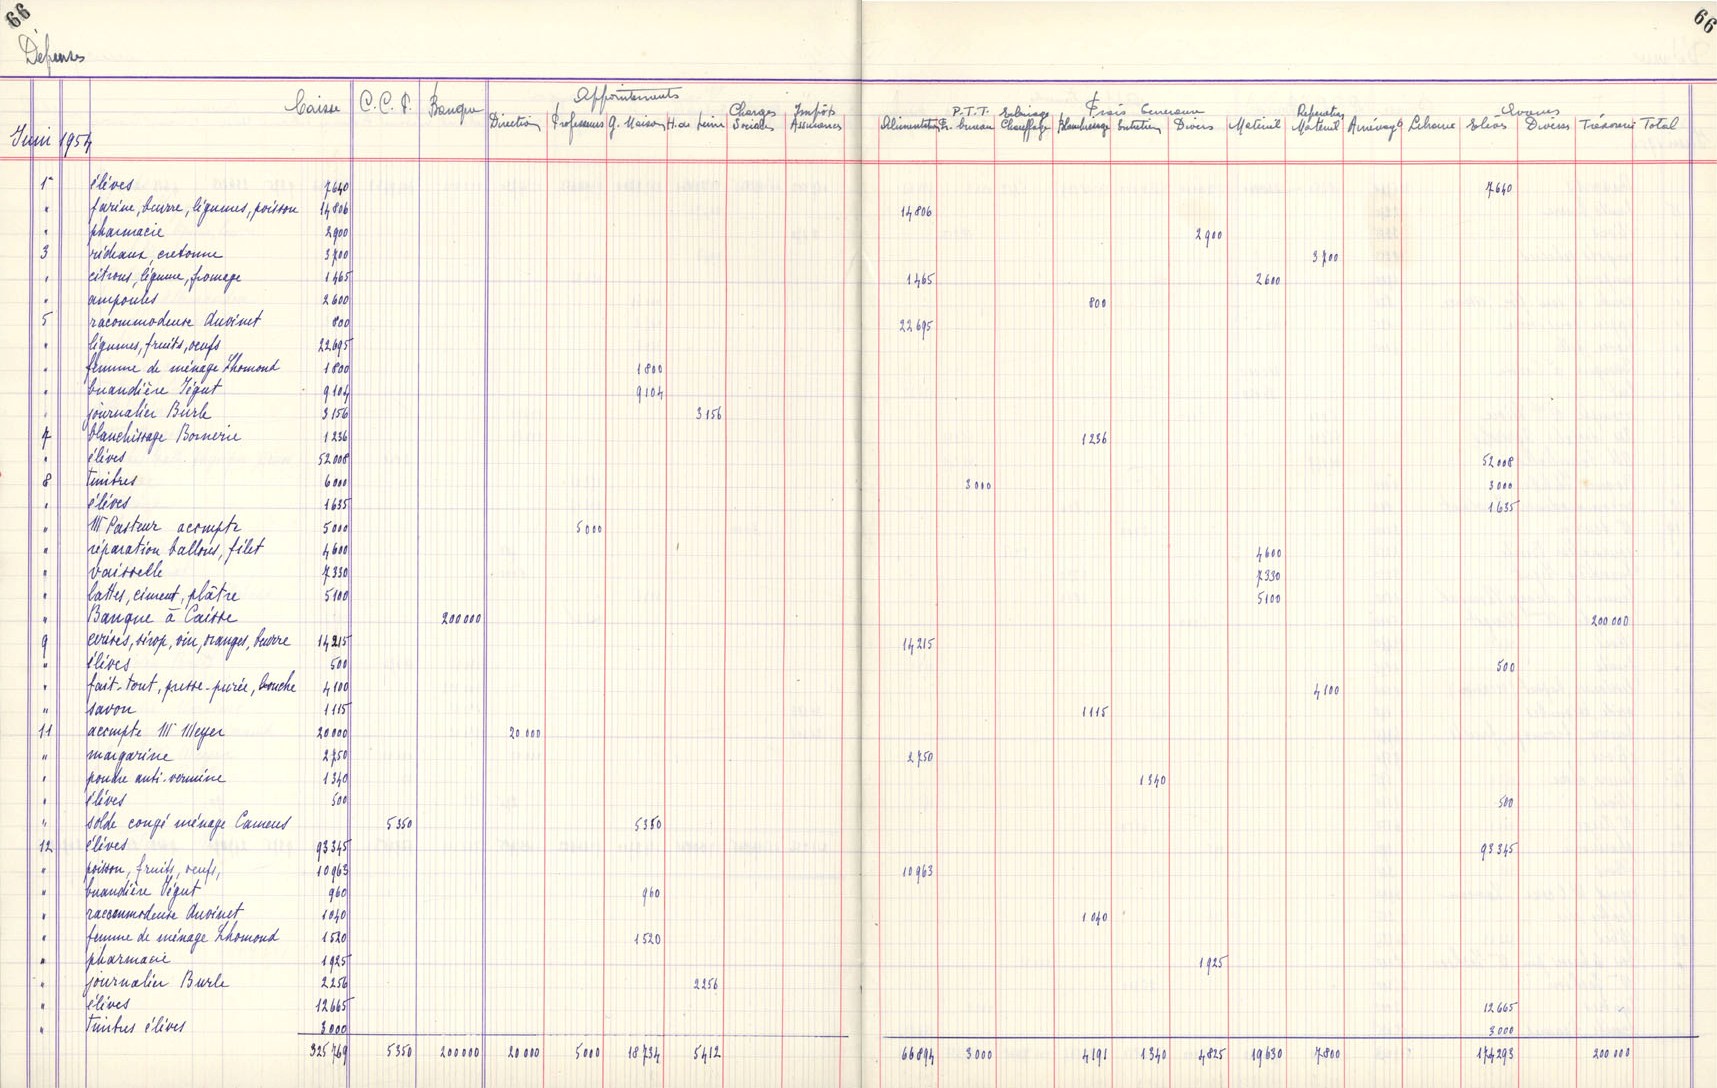 66
66
Dépenses
Caisse C.C.P. Banque Appointements Charges Sociales Impôts Assurances P.T.T. Fr. bureau Eclairage Chauffage Frais Generaux Réparation Matériel Avances
Direction Professeurs G. Maison H. de Peine Alimentation Blanchissage Entretien Divers Matériel Aménagt Librairie Elèves Divers Trésorerie Total
Juin 1954
1 élèves 7640 7640
" farine, beurre, légumes, poisson 14806 14806
" pharmacie 2900 2900
3 rideaux, cretonne 3700 3700
" citrons, légume, fromage 1465 1465 2600
" ampoules 2600 800
5 racommodeuse Auvinet 800 22695
" légumes, fruits, oeufs 22695
" femme de ménage Lhomond 1800 1800
" buandière Végut 9104 9104
" journalier Burle 3156 3156
7 blanchissage Bornerie 1236 1236
" élèves 52008 52008
8 timbres 6000 3000 3000
" élèves 1635 1635
" Mr Pasteur acompte 5000 5000
" réparation ballons, filet 4600 4600
" vaisselle 7330 7330
" lattes, ciment, plâtre 5100 5100
" Banque à Caisse 200000 200000
9 cerises, sirop, vin, oranges, beurre 14215 14215
" élèves 500 500
" fait-tout, presse-purée, louche 4100 4100
" savon 1115 1115
11 acompte Mr Meyer 20000 20000
" margarine 2750 2750
" poudre anti-vermine 1340 1340
" élèves 500 500
" solde congé ménage Camens 5350 5350
12 élèves 93345 93345
" poisson, fruits, oeufs, 10963 10963
" buandière Végut 960 960
" raccommodeuse Auvinet 1040 1040
" femme de ménage Lhomond 1520 1520
" pharmacie 1925 1925
" journalier Burle 2256 2256
" élèves 12665 12665
" timbres élèves 3000 3000
325769 5350 200000 20000 5000 18734 5412 66894 3000 4191 1340 4825 19630 7800 174293 200000